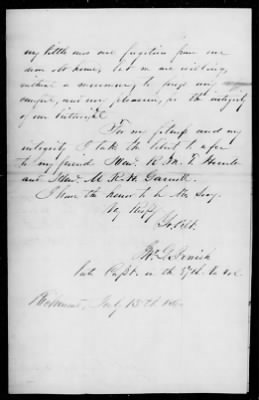 my little ones are fugitives from our
dear old home, yet we are willing,
without a murmuring to forego any
comfort, and any pleasure, for the integrity
of our birthright.
For my fitness and my
integrity I take the liberty to refer
to my friend Hon. R. M. T. Hunter
and Hon. M. R. H. Garnett.
I have the honor to be Mr Secy.
Very Resp'y
Yr. Obt.
late Capt. in the 37th Va Vol
Richmond, July 15th